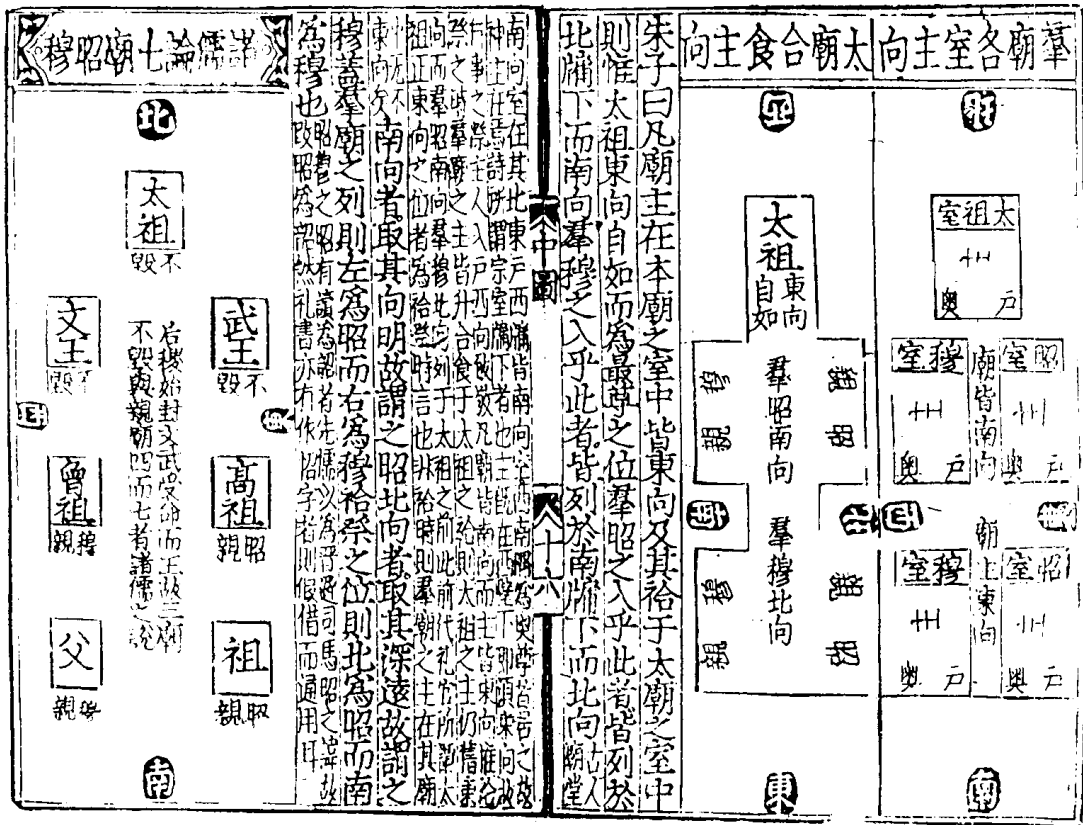 羣廟各室主向
太祖室
主
戶
奧
昭室
主
戶
奧
廟皆南向
廟主東向
穆室
主
戶
奧
昭室
主
戶
奧
穆室
主
戶
奧
南
太廟合食主向
太祖
東向
自如
羣昭南向
羣穆北向
親昭
親昭
親穆
親穆
東
朱子曰凡廟主在本廟之室中皆東向及其祫于太廟之室中
則惟太祖東向自如而為最尊之位羣昭之入乎此者皆列於
北牖下而南向羣穆之入乎此者皆列於南牖下而北向
古人
廟堂
中圖
十六
南向室在其北東戶西牖皆南向室西南隅為奧尊者居之故
神主在焉詩所謂宗室牖下者也主既在西壁下即須東向故
行事之際主人入戶西向致敬凡廟皆南向而主皆東向惟祫
祭之時羣廟之主皆升合食于太祖之祫則太祖之主仍舊東
向而羣昭南向羣穆北向列于太祖之前此前代礼官所謂太
祖正東向之位者為祫祭時言也非祫時則羣廟之主在其廟
中尤不
東向矣
南向者取其向明故謂之昭北向者取其深遠故謂之
穆蓋羣廟之列則左為昭而右為穆祫祭之位則北為昭而南
為穆也
昭之昭有讀為韶者先儒以為晉避司馬昭之諱故
改昭為韶然礼書亦有作字者則假借而通用耳
諸儒論七廟昭穆
北
太祖
不毀
武王
不毀
文王
不毀
后稷始封文武受命而王故三廟
不毀與親廟四而七者諸儒之說
高祖
昭親
曾祖
穆親
祖
昭親
父
穆親
南